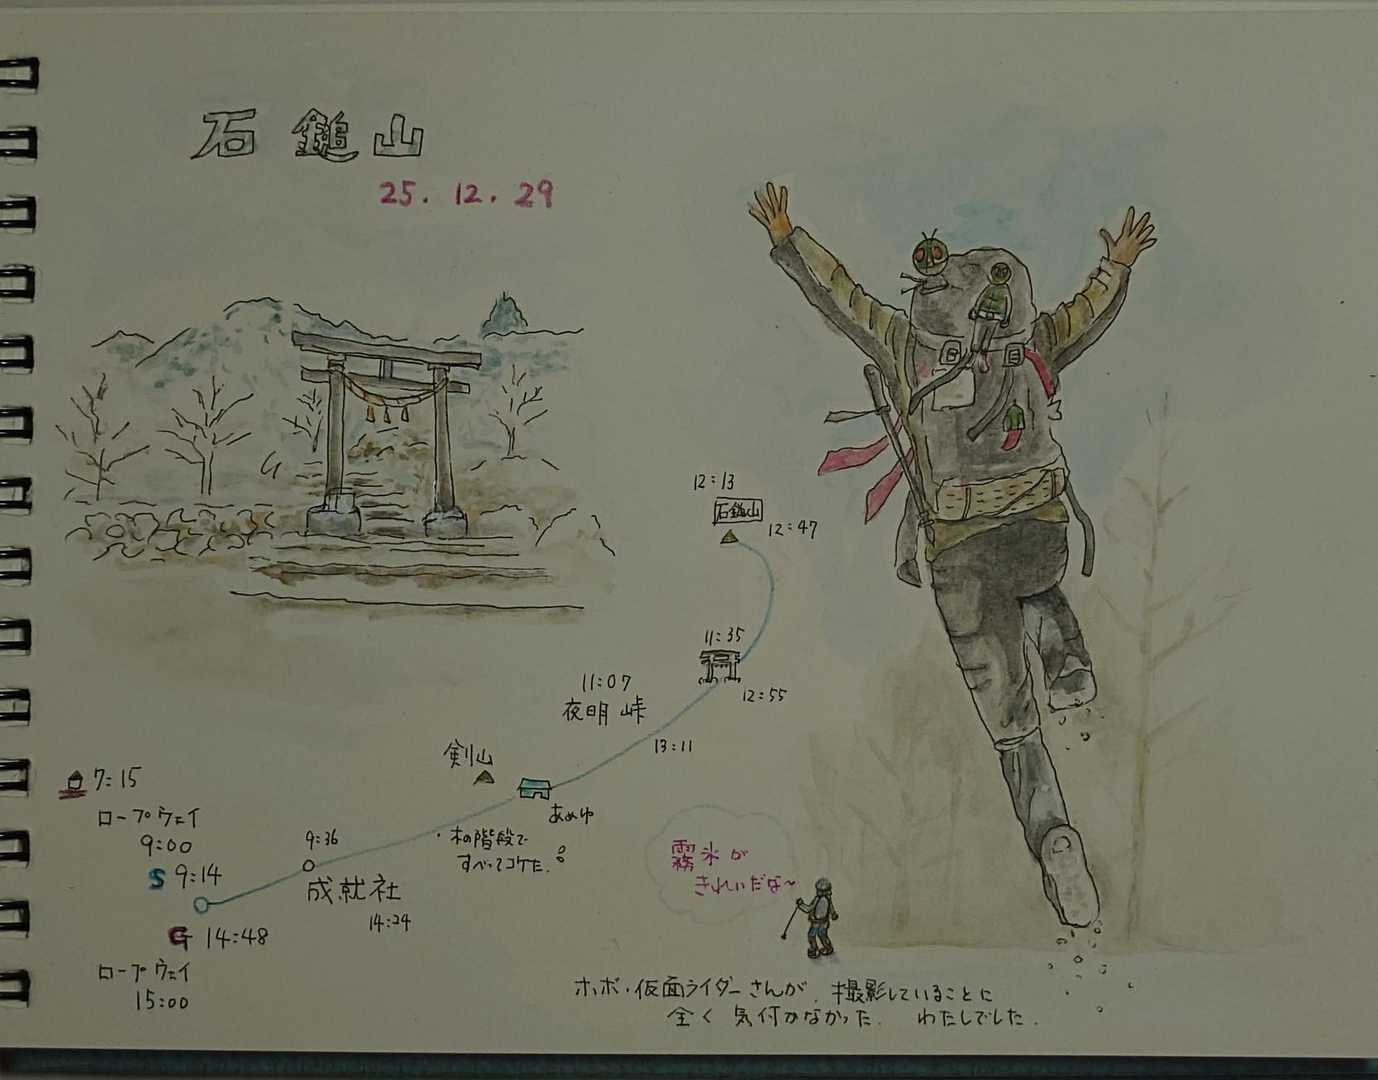 石鎚山
25.12.29
12:13
石鎚山
12:47
11:35
12:55
11:07
夜明峠
13:11
剣山
あめゆ
・木の階段で
すべってコケた。
7:15
ロープウェイ
9:00
S 9:14
9:36
成就社
14:24
G 14:48
ロープウェイ
15:00
霧氷が
きれいだな〜
ホボ・仮面ライダーさんが、撮影していることに
全く気付かなかった。 わたしでした.